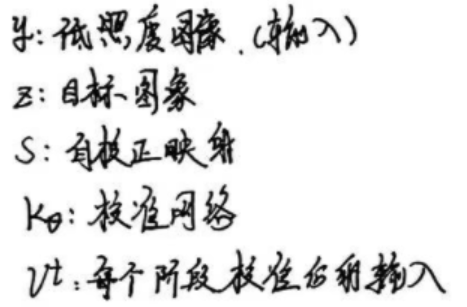 y: 低照度图象.(输入)
z: 目标图象
S: 自校正映射
Kθ: 校准网络
vt: 每个阶段校准后的输入